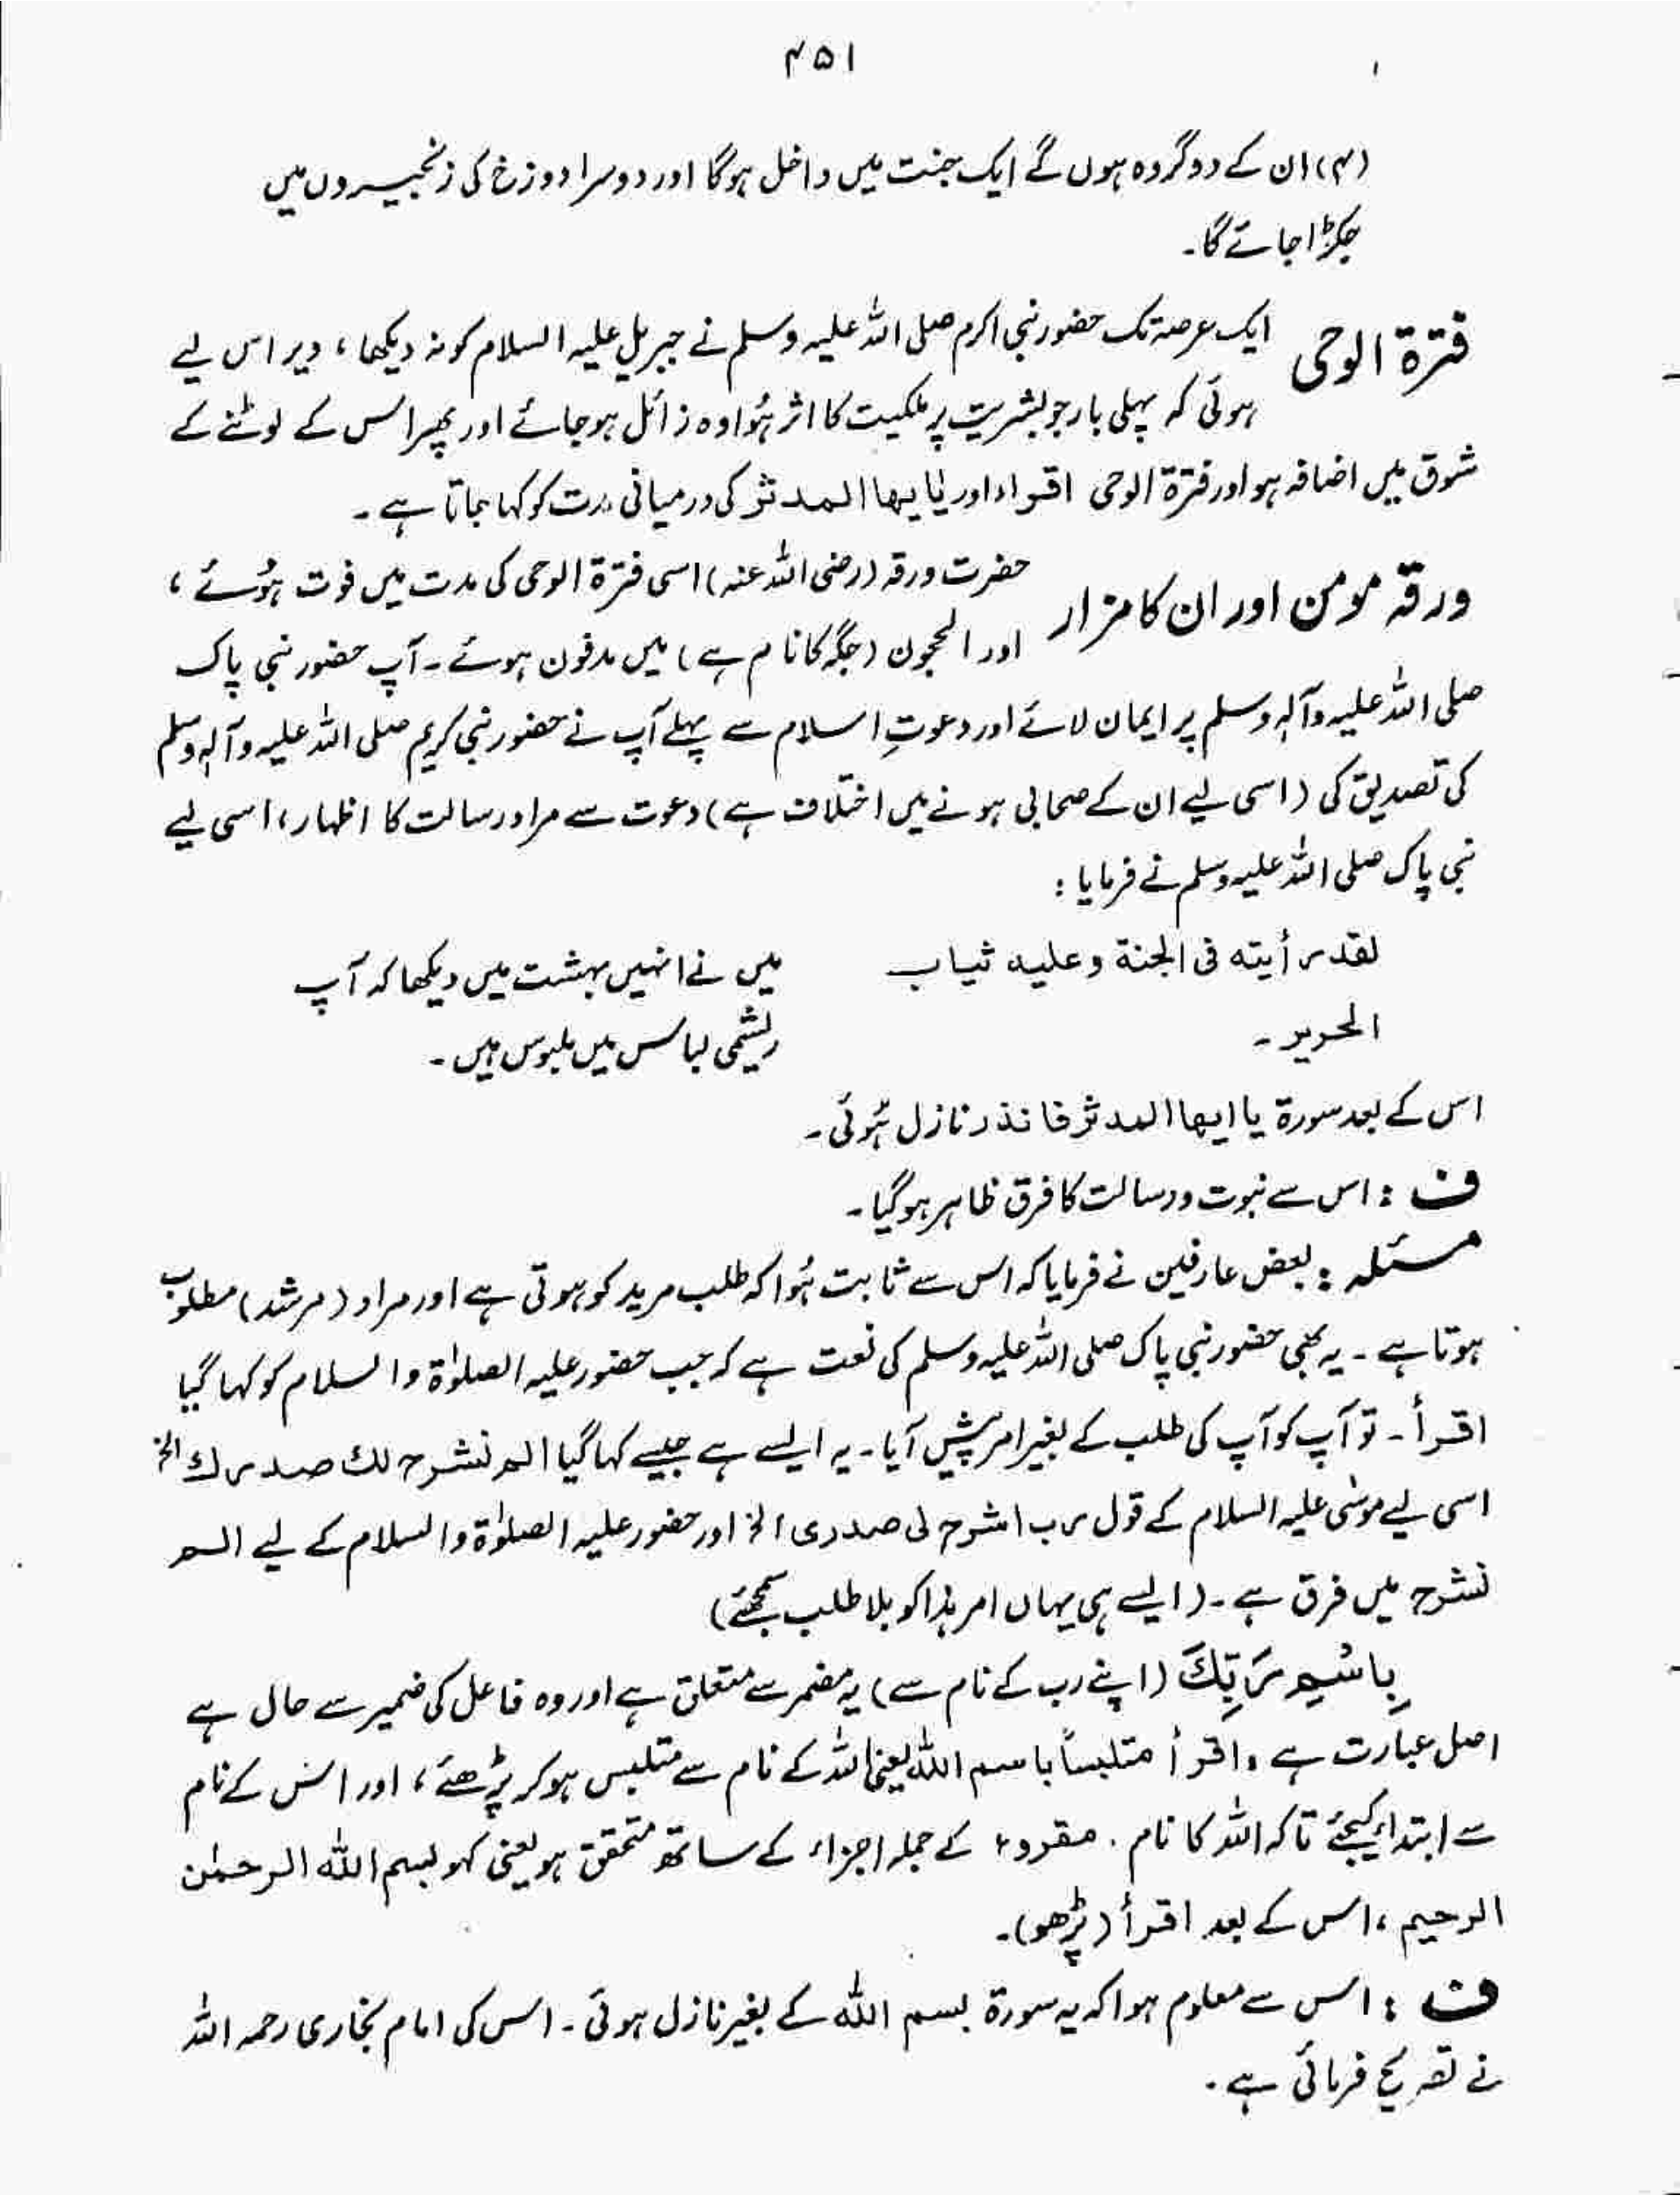 ۴۵۱
(۳) ان کے دو گروہ ہوں گے ایک جنت میں داخل ہوگا اور دوسرا دوزخ کی زنجیروں میں
جکڑا جائے گا۔
فترۃ الوحی ایک عرصہ تک حضور نبی اکرم صلی اللہ علیہ وسلم نے جبریل علیہ السلام کو نہ دیکھا ، دیر اس لیے
ہوئی کہ پہلی بار جو بشریت پر ملکیت کا اثر ہُوا وہ زائل ہو جائے اور پھر اس کے لوٹنے کے
شوق میں اضافہ ہو اور فترۃ الوحی اقراء اور یٰایہا المدثر کی درمیانی مدت کو کہا جاتا ہے ۔
ورقہ مومن اور ان کا مزار حضرت ورقہ (رضی اللہ عنہ) اسی فترۃ الوحی کی مدت میں فوت ہُوئے ،
اور الحجون (جگہ کا نام ہے) میں مدفون ہوئے ۔ آپ حضور نبی پاک
صلی اللہ علیہ وآلہٖ وسلم پر ایمان لائے اور دعوتِ اسلام سے پہلے آپ نے حضور نبی کریم صلی اللہ علیہ وآلہٖ وسلم
کی تصدیق کی (اسی لیے ان کے صحابی ہونے میں اختلاف ہے) دعوت سے مراد رسالت کا اظہار ، اسی لیے
نبی پاک صلی اللہ علیہ وسلم نے فرمایا :
لقد رأیته فی الجنة وعلیه ثیاب
الحریر ۔
میں نے انہیں بہشت میں دیکھا کہ آپ
ریشمی لباس میں ملبوس ہیں ۔
اس کے بعد سورۃ یا ایھا المدثر فانذر نازل ہُوئی ۔
ف : اس سے نبوت ورسالت کا فرق ظاہر ہوگیا ۔
مسئلہ : بعض عارفین نے فرمایا کہ اس سے ثابت ہُوا کہ طلب مرید کو ہوتی ہے اور مراد (مرشد) مطلوب
ہوتا ہے ۔ یہ بھی حضور نبی پاک صلی اللہ علیہ وسلم کی نعت ہے کہ جب حضور علیہ الصلوٰۃ والسلام کو کہا گیا
اقرأ ۔ تو آپ کو آپ کی طلب کے بغیر امر پیش آیا ۔ یہ ایسے ہے جیسے کہا گیا الم نشرح لك صدرك الخ
اسی لیے موسٰی علیہ السلام کے قول رب اشرح لی صدری الخ اور حضور علیہ الصلوٰۃ والسلام کے لیے الم
نشرح میں فرق ہے ۔ (ایسے ہی یہاں امر ہذا کو بلا طلب سمجھئے)
بِاسْمِ رَبِّكَ (اپنے رب کے نام سے) یہ مضمر سے متعلق ہے اور وہ فاعل کی ضمیر سے حال ہے
اصل عبارت ہے ، اقرأ متلبساً باسم اللہ یعنی اللہ کے نام سے متلبس ہو کر پڑھئے ، اور اس کے نام
سے ابتداء کیجئے تاکہ اللہ کا نام ۔ مقروء کے جملہ اجزاء کے ساتھ متحقق ہو یعنی کہو بسم اللہ الرحمٰن
الرحیم ، اس کے بعد اقرأ (پڑھو)۔
ف : اس سے معلوم ہوا کہ یہ سورۃ بسم اللہ کے بغیر نازل ہوئی ۔ اس کی امام بخاری رحمہ اللہ
نے تصریح فرمائی ہے ۔